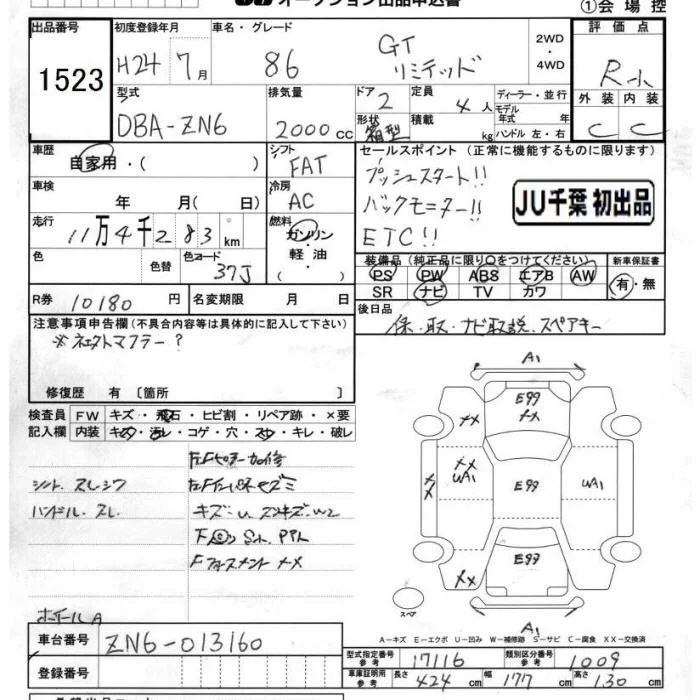 オークション出品申込書
①会場控
出品番号
1523
初度登録年月
H24 7月
車名・グレード
86
GT
リミテッド
2WD
・
4WD
評価点
R
外装 内装
C C
型式
DBA-ZN6
排気量
2000 cc
ドア
2
形状
箱型
定員
4人
積載
kg
ディーラー・並行
モデル
年式 年
ハンドル 左・右
車歴
自家用・( )
シフト
FAT
車検
年 月( 日)
冷房
AC
走行
11万4千283 km
燃料
ガソリン
軽・油
( )
色
色替
色コード
37J
R券 10180 円
名変期限 月 日
セールスポイント (正常に機能するものに限ります)
プッシュスタート!!
バックモニター!!
ETC!!
JU千葉 初出品
装備品 (純正品に限り○をつけてください)
PS PW ABS エアB AW
SR ナビ TV カワ
新車保証書
有・無
後日品
保・取・ナビ取説、スペアキー
注意事項申告欄 (不具合内容等は具体的に記入して下さい)
修復歴 有 〔箇所 〕
検査員
記入欄
FW キズ・飛石・ヒビ割・リペア跡・×要
内装 キズ・汚レ・コゲ・穴・スレ・キレ・破レ
シート スレシワ
ハンドル スレ
キズ・U
ホイールA
A1
E99
XX
XX
XX
UA1
XX
E99
UA1
E99
XX
A1
スペア
A-キズ E-エクボ U-凹み W-補修跡 S-サビ C-腐食 XX-交換済
車台番号
ZN6-013160
登録番号
型式指定番号
参考
17116
類別区分番号
参考
1009
車庫証明用
参考
長さ 424 cm 幅 177 cm 高さ 130 cm